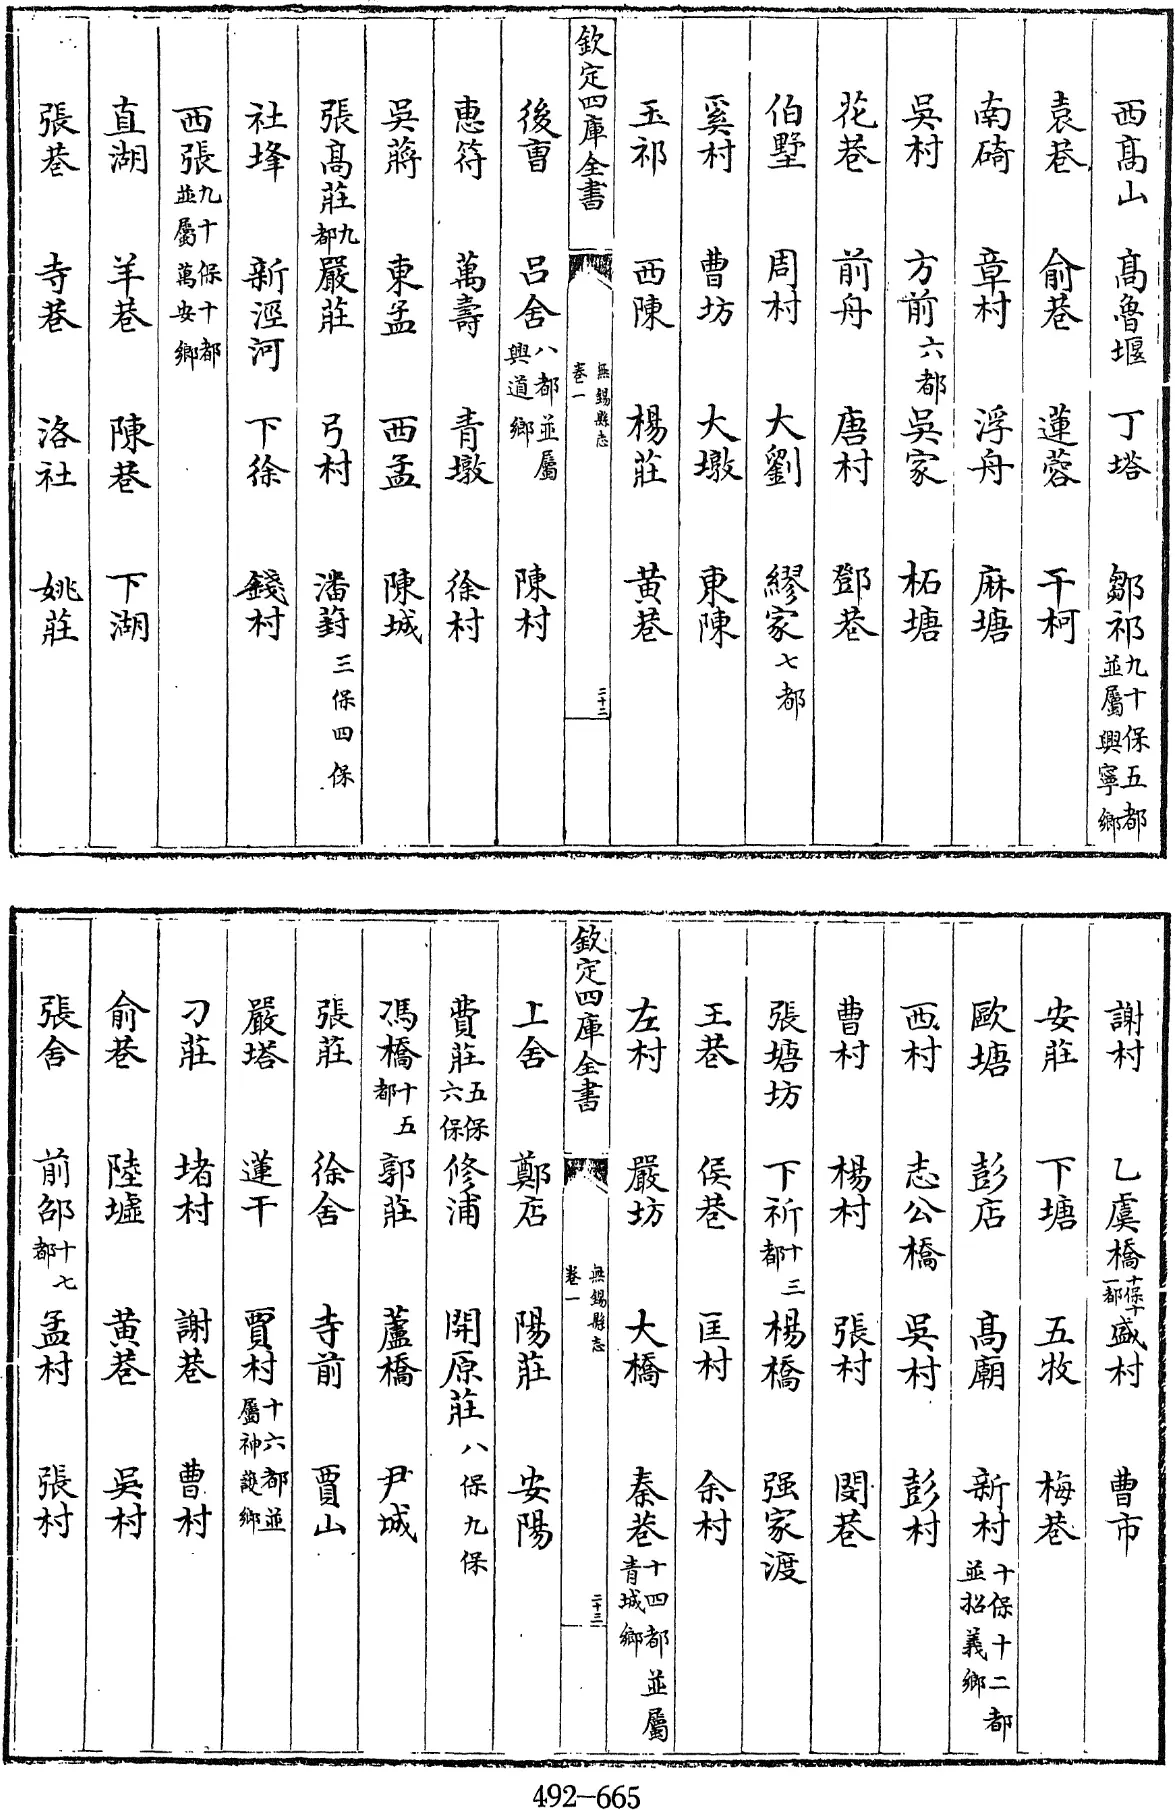 西髙山　髙魯堰　丁塔　鄒祁九十保五都並屬興寧鄉
袁巷　俞巷　蓮蓉　干柯
南碕　章村　浮舟　麻塘
吳村　方前六都　吳家　柘塘
花巷　前舟　唐村　鄧巷
伯墅　周村　大劉　繆家七都
奚村　曹坊　大墩　東陳
玉祁　西陳　楊莊　黄巷
欽定四庫全書
無錫縣志
卷一
二十二
後曺　呂舍八都並屬興道鄉　陳村
惠符　萬壽　青墩　徐村
吳蔣　東孟　西孟　陳城
張髙莊九都　嚴莊　弓村　潘葑三保四保
社埄　新涇河　下徐　錢村
西張九十保十都並屬萬安鄉
直湖　羊巷　陳巷　下湖
張巷　寺巷　洛社　姚莊
謝村　乙虞橋十保十一都　盛村　曹市
安莊　下塘　五牧　梅巷
歐塘　彭店　髙廟　新村十保十二都並招義鄉
西村　志公橋　吳村　彭村
曹村　楊村　張村　閔巷
張塘坊　下祈十三都　楊橋　强家渡
王巷　侯巷　匡村　余村
左村　嚴坊　大橋　秦巷十四都並屬青城鄉
欽定四庫全書
無錫縣志
卷一
二十三
上舍　鄭店　陽莊　安陽
費莊五保六保　修浦　開原莊八保九保
馮橋十五都　郭莊　蘆橋　尹城
張莊　徐舍　寺前　賈山
嚴塔　蓮干　賈村十六都並屬神護鄉
刁莊　堵村　謝巷　曹村
俞巷　陸墟　黄巷　吳村
張舍　前邵十七都　孟村　張村
492-665